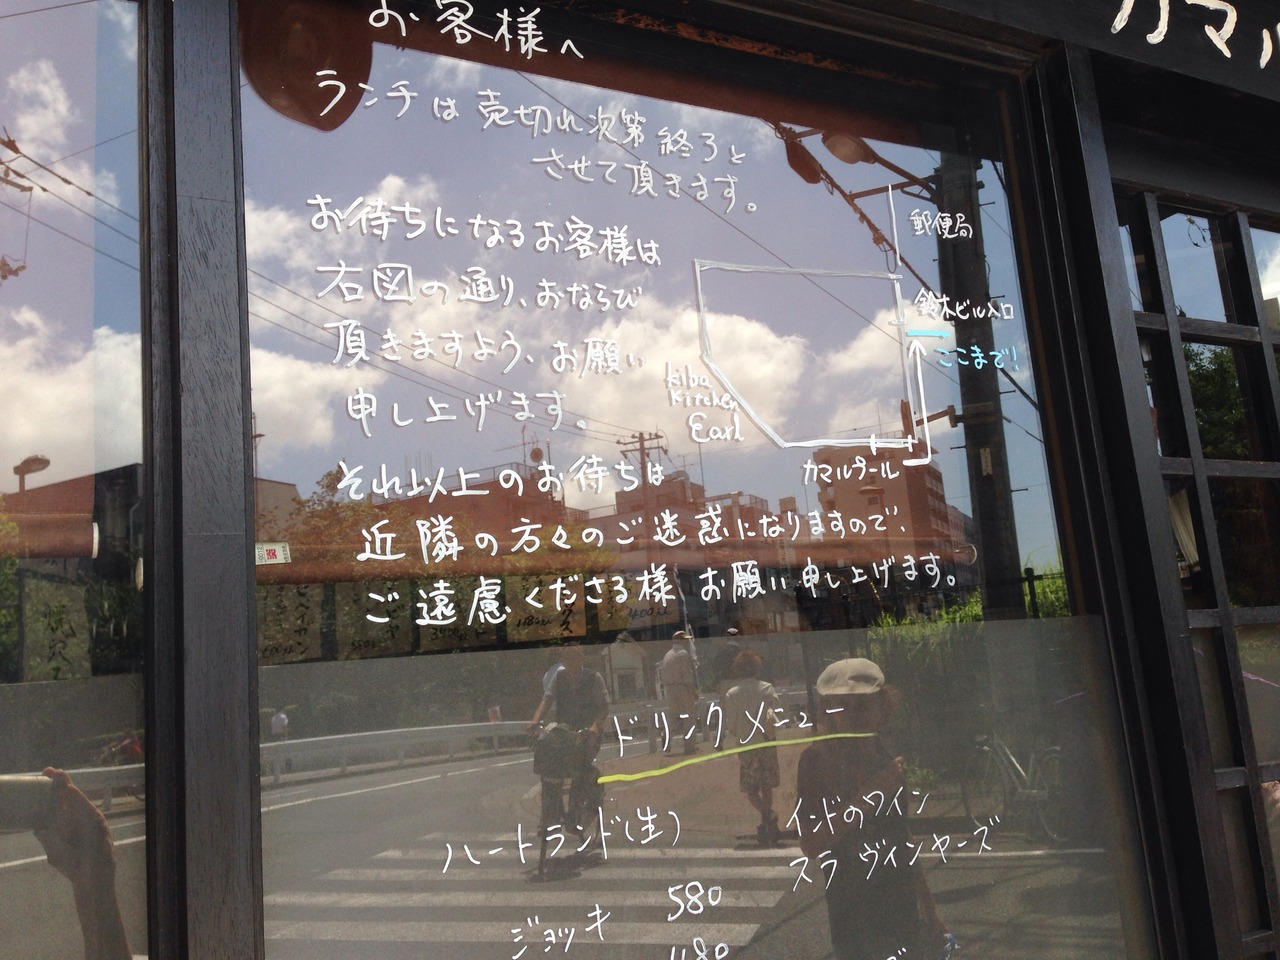 お客様へ
カマル
ランチは売切れ次第終了と
させて頂きます。
お待ちになるお客様は
右図の通り、おならび
頂きますよう、お願い
申し上げます。
それ以上のお待ちは
近隣の方々のご迷惑になりますので、
ご遠慮くださる様 お願い申し上げます。
郵便局
鈴木ビル入口
ここまで!
kiba
kitchen
Earl
カマルプール
ドリンクメニュー
ハートランド(生)
580
ジョッキ
480
インドのワイン
スラ ヴィンヤーズ